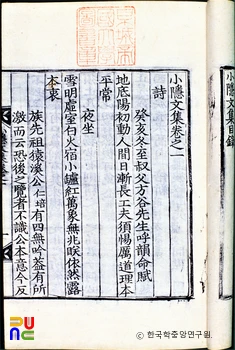 小隱文集卷之一
詩
癸亥冬至叔父方谷先生呼韻命賦
地底陽初動人間日漸長工夫須惕厲道理本
平常
夜坐
雪明虛室白火宿小罏紅萬象無兆眹依然露
本衷
族先祖猿溪公仁培有四無吟蓋有所
激而云恐後之覽者不識公本意今反
小隱文集目錄
한국학중앙연구원